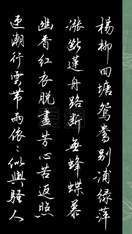 楊柳回塘鴛鴦別浦綠萍
漲斷蓮舟路斷無蜂蝶慕
幽香紅衣脫盡芳心苦返照
迎潮行雲帶雨依〻似與騷人